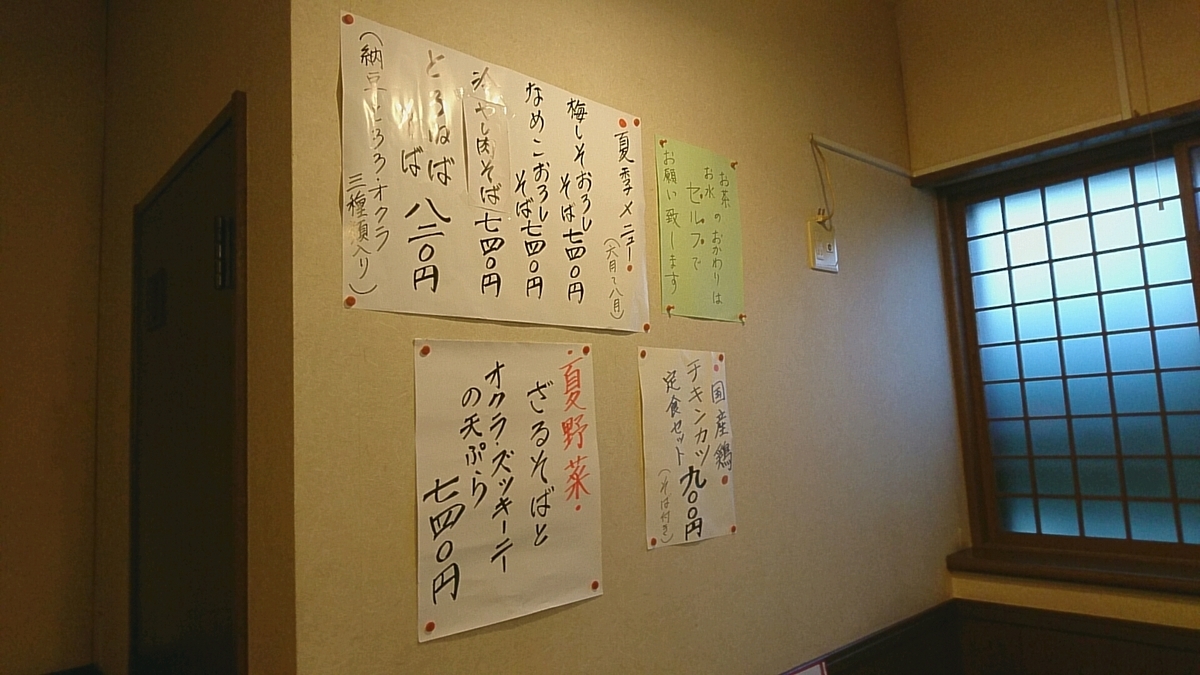 夏季メニュー
(六月~八月)
梅しそおろし
そば七四〇円
なめこおろし
そば七四〇円
冷やし肉そば七四〇円
とろねば
そば八二〇円
(納豆・とろろ・オクラ
三種類入り)
お茶のおかわりは
お水
セルフで
お願い致します
夏野菜
ざるそばと
オクラ・ズッキーニ
の天ぷら
七四〇円
国産鶏
チキンカツ
定食セット
九〇〇円
(そば付き)